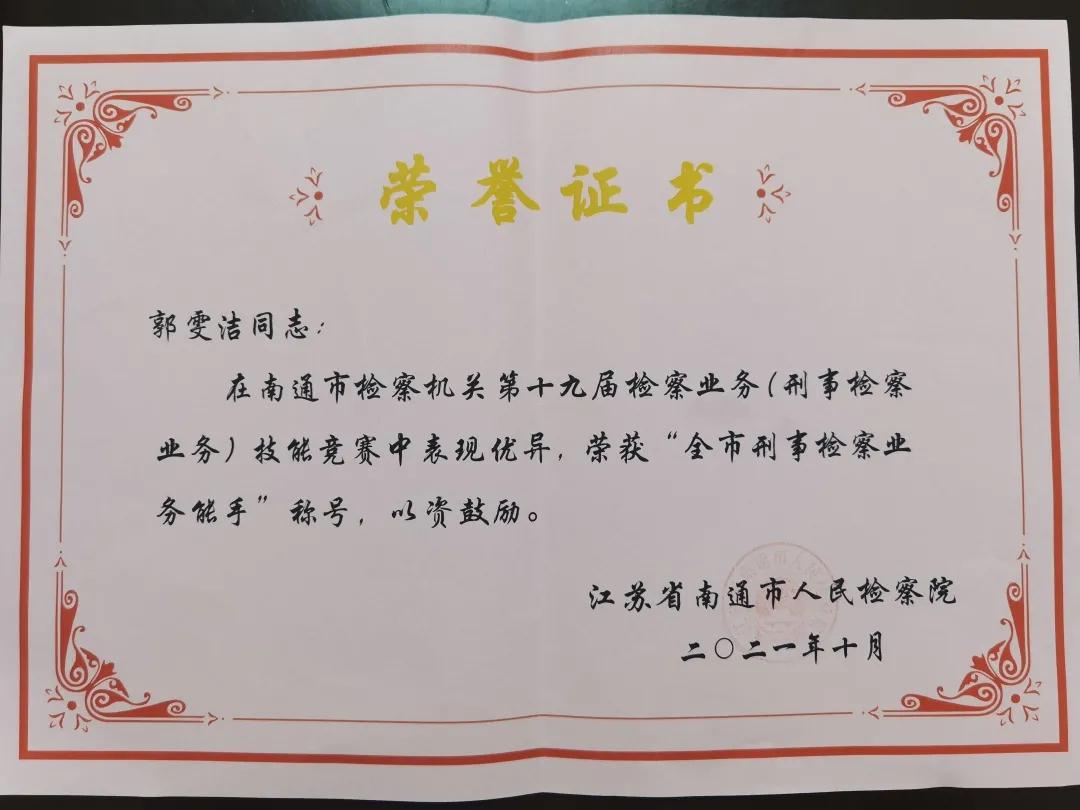 荣誉证书
郭雯洁同志：
在南通市检察机关第十九届检察业务（刑事检察
业务）技能竞赛中表现优异，荣获“全市刑事检察业
务能手”称号，以资鼓励。
江苏省南通市人民检察院
二〇二一年十月